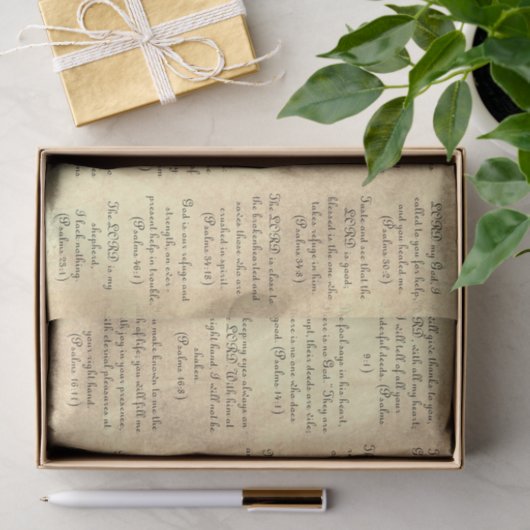 LORD my God, I
called to you for help,
and you healed me.
(Psalms 30:2)
Taste and see that the
LORD is good;
blessed is the one who
takes refuge in him.
(Psalms 34:8)
The LORD is close to
the brokenhearted and
saves those who are
crushed in spirit.
(Psalms 34:18)
God is our refuge and
strength, an ever-
present help in trouble.
(Psalms 46:1)
The LORD is my
shepherd,
I lack nothing.
(Psalms 23:1)
will give thanks to you,
RD, with all my heart;
I will tell of all your
derful deeds. (Psalms
9:1)
e fool says in his heart,
ere is no God." They are
rupt, their deeds are vile;
ere is no one who does
good. (Psalms 14:1)
keep my eyes always on
LORD. With him at
right hand, I will not be
shaken.
(Psalms 16:8)
make known to me the
h of life; you will fill me
th joy in your presence,
ith eternal pleasures at
your right hand.
(Psalms 16:11)